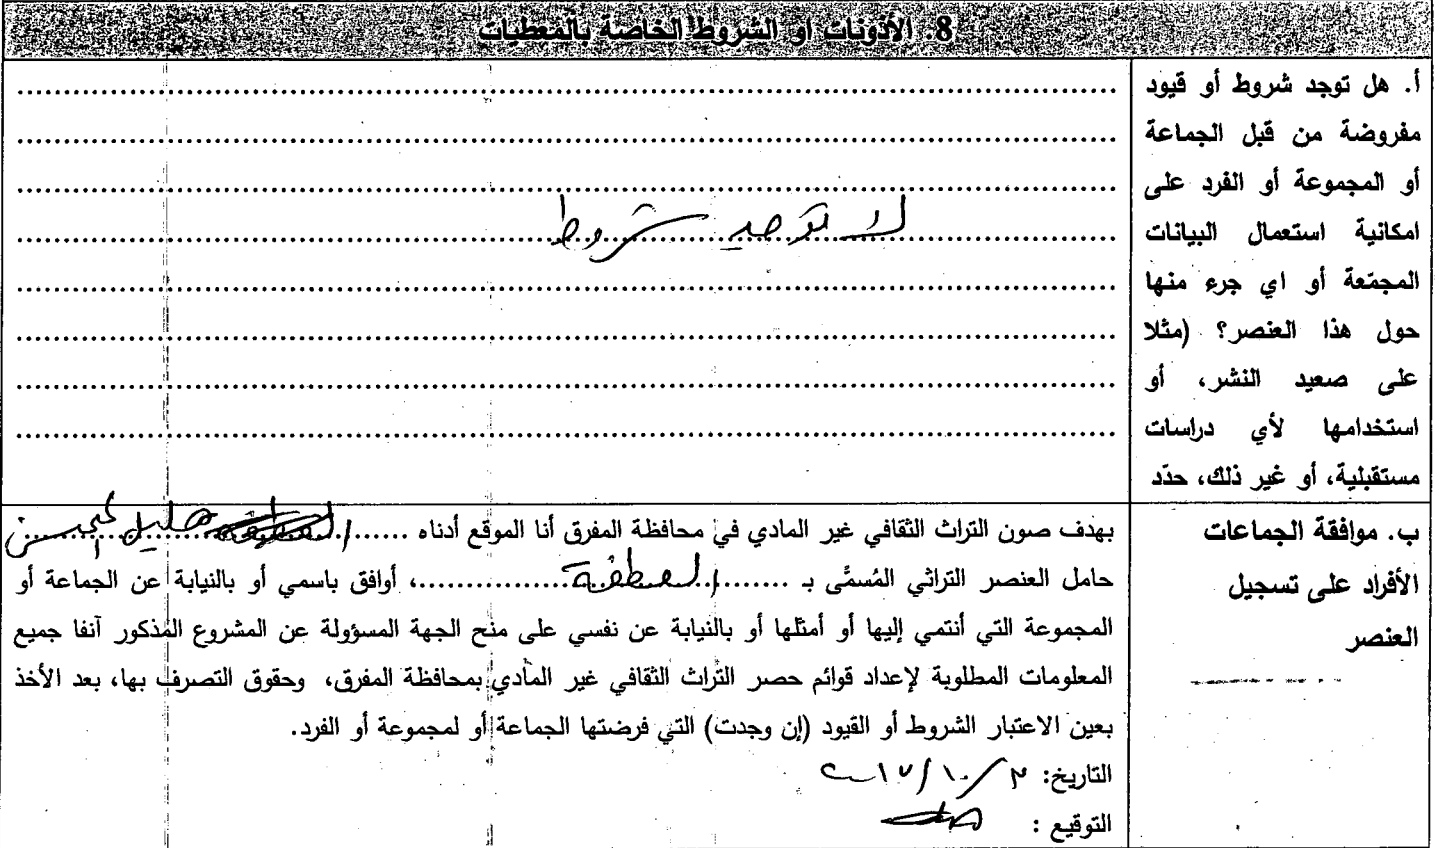 8. الأذونات او الشروط الخاصة بالمعطيات
أ. هل توجد شروط أو قيود
مفروضة من قبل الجماعة
أو المجموعة أو الفرد على
امكانية استعمال البيانات
المجمّعة أو اي جرء منها
حول هذا العنصر؟ (مثلا
على صعيد النشر، أو
استخدامها لأي دراسات
مستقبلية، أو غير ذلك، حدّد
لا توجد شروط
ب. موافقة الجماعات
الأفراد على تسجيل
العنصر
بهدف صون التراث الثقافي غير المادي في محافظة المفرق أنا الموقع أدناه ...... هليل
حامل العنصر التراثي المُسمَّى بـ ........العطفة................، أوافق باسمي أو بالنيابة عن الجماعة أو
المجموعة التي أنتمي إليها أو أمثلها أو بالنيابة عن نفسي على منح الجهة المسؤولة عن المشروع المذكور آنفا جميع
المعلومات المطلوبة لإعداد قوائم حصر التراث الثقافي غير المادي بمحافظة المفرق، وحقوق التصرف بها، بعد الأخذ
بعين الاعتبار الشروط أو القيود (إن وجدت) التي فرضتها الجماعة أو لمجموعة أو الفرد.
التاريخ: ٣/١٠/٢٠١٧
التوقيع :